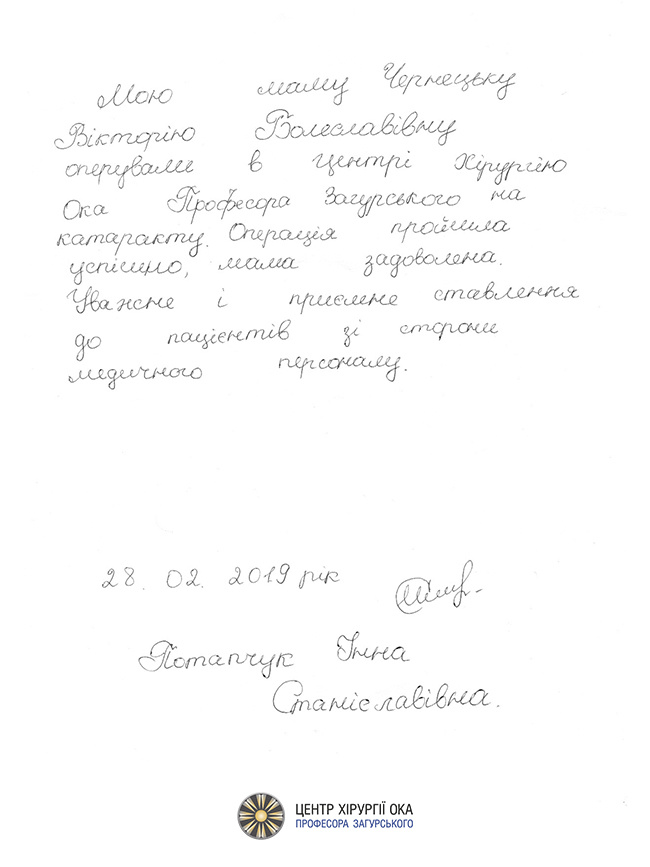 Мою маму Чернецьку
Вікторію Болеславівну
оперували в центрі Хірургією
Ока Професора Загурського на
катаракту. Операція пройшла
успішно, мама задоволена.
Уважне і приємне ставлення
до пацієнтів зі сторони
медичного персоналу.
28. 02. 2019 рік
Потапчук Інна
Станіславівна.
ЦЕНТР ХІРУРГІЇ ОКА
ПРОФЕСОРА ЗАГУРСЬКОГО